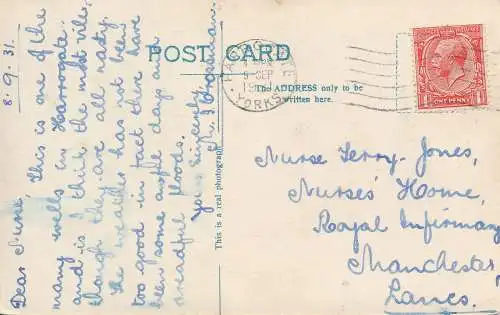 8.9.31.
Dear Nurse, This is one of the
many wells in Harrogate.
and is I think the most vile,
though they are all nasty.
The weather has not been
too good in fact there have
been some awful days and
dreadful floods.
Yours Sincerely
POST CARD
HARROGATE
SEP
YORKS
The ADDRESS only to be
written here.
ONE PENNY
This is a real photograph
Nurse Terry-Jones,
Nurses' Home,
Royal Infirmary
Manchester
Lancs.